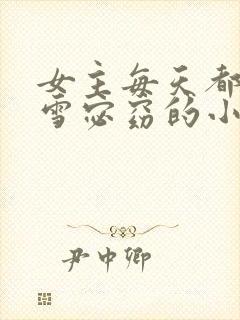 女主每天都
雪宓窈的小
尹中卿